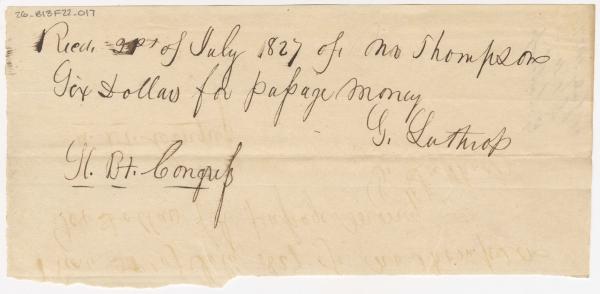 26-B13F22-017
Recd. 21st of July 1827 of Mr Thompson
Six Dollars for passage money
G. Lathrop
St. Bt. Congress